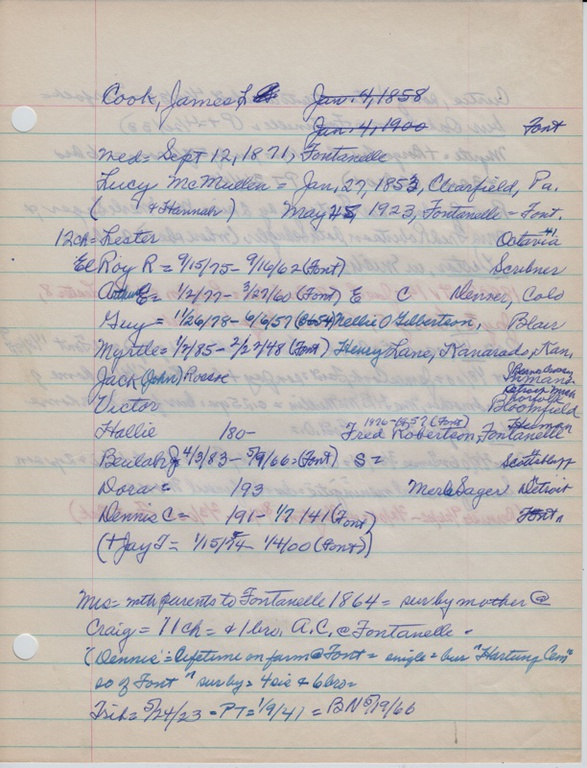 Cook, James L. Jan. 4, 1858
Jan. 4, 1900 Font
Med = Sept 12, 1871, Fontanelle
Lucy McMullen = Jan, 27, 1853, Clearfield, Pa.
( + Hannah) May 1923, Fontanelle = Font.
12ch = Lester Octavia
El Roy R = 9/15/75 - 9/16/62 (Font) Scribner
Arthur E = 1/2/77 - 3/27/60 (Font) E C Denver, Colo
Guy = 11/26/78 - 6/6/57 Nellie O Gilbertson, Blair
Myrtle = 1/2/85 - 2/22/48 (Font) Henry Lane, Kanarado, Kan,
Jack (John) Roesk
Victor Bloomfield
Hallie 180- Fred Robertson, Fontanelle
Beulah J 4/3/83 - 5/9/66 = (Font) S = Scottsbluff
Dora = 193 Merle Sager Detroit
Dennis C = 191 - 1/7 141 (Font) Font
(+ Jay T = 1/15/74 - 1/4/00 (Font)
Mrs = mth parents to Fontanelle 1864 = sur by mother @
Craig = 11 ch = + 1 bro, A.C. @ Fontanelle -
"(Dennis = lifetime on farm @ Font = single = bur "Hartung Cem"
so of Font" sur by = 4 sis & 6 bro =
Trib = 5/24/23 = PT = 1/9/41 = BN 5/19/66